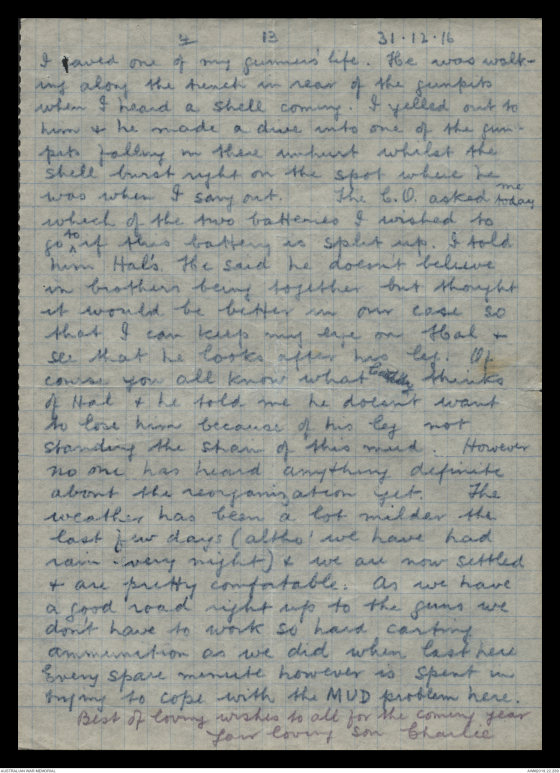 7 13 31.12.16
I saved one of my gunners' life. He was walk-
ing along the trench in rear of the gunpits
when I heard a shell coming. I yelled out to
him & he made a dive into one of the gun-
pits falling in there unhurt whilst the
shell burst right on the spot where he
was when I sang out. The C.O. asked me today
which of the two batteries I wished to
go to if this battery is split up. I told
him Hal's. He said he doesnt believe
in brothers being together but thought
it would be better in our case so
that I can keep my eye on Hal &
see that he looks after his leg. Of
course you all know what Caddy thinks
of Hal & he told me he doesnt want
to lose him because of his leg not
standing the strain of this mud. However
no one has heard anything definite
about the reorganization yet. The
weather has been a lot milder the
last few days (altho' we have had
rain every night) & we are now settled
& are pretty comfortable. As we have
a good road right up to the guns we
dont have to work so hard carting
ammunition as we did when last here
Every spare minute however is spent in
trying to cope with the MUD problem here.
Best of loving wishes to all for the coming year
Your loving son Charlie
AUSTRALIAN WAR MEMORIAL